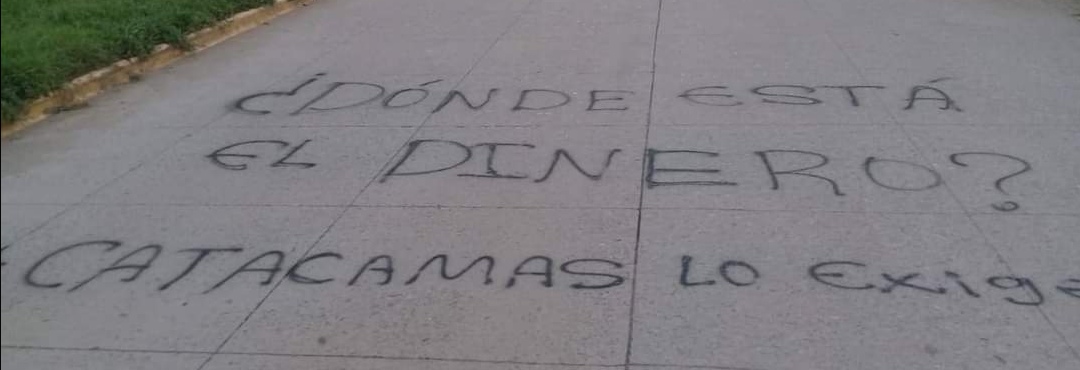 ¿DÓNDE ESTÁ
EL DINERO?
CATACAMAS LO Exige